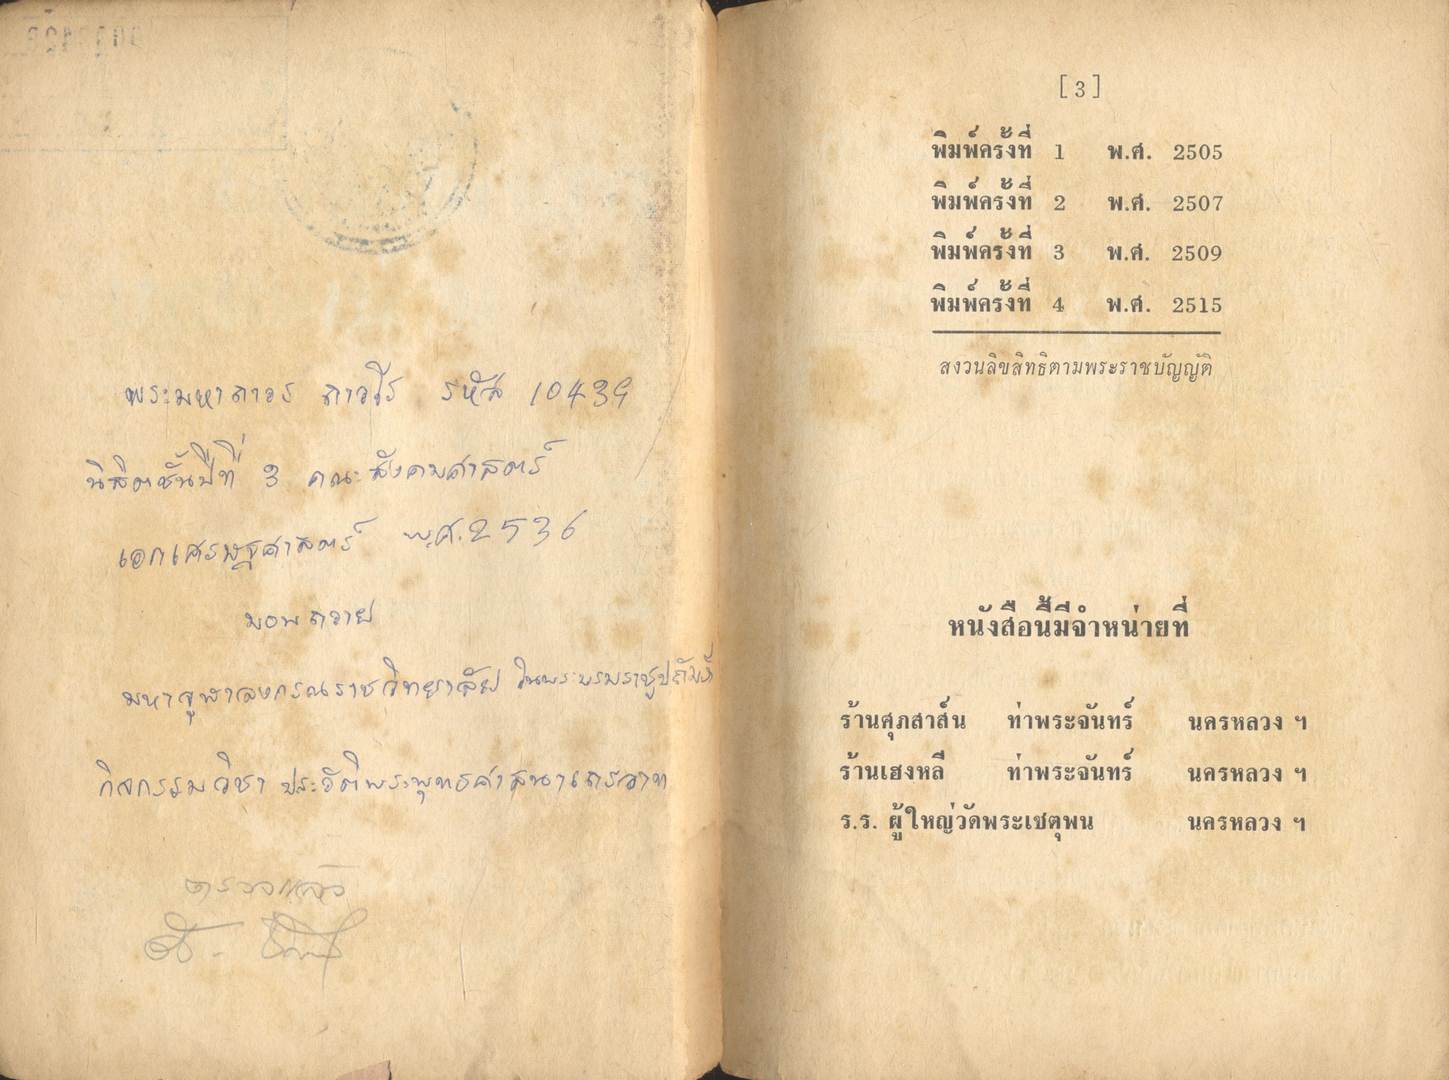 พระมหาถาวร ถาวโร รหัส 10439
นิสิตชั้นปีที่ 3 คณะสังคมศาสตร์
เอกเศรษฐศาสตร์ พ.ศ. 2536
มอบถวาย
มหาจุฬาลงกรณราชวิทยาลัย ในพระบรมราชูปถัมภ์
กิจกรรมวิชา ประวัติพระพุทธศาสนาเถรวาท
ตรวจแล้ว
[3]
พิมพ์ครั้งที่ 1 พ.ศ. 2505
พิมพ์ครั้งที่ 2 พ.ศ. 2507
พิมพ์ครั้งที่ 3 พ.ศ. 2509
พิมพ์ครั้งที่ 4 พ.ศ. 2515
สงวนลิขสิทธิตามพระราชบัญญัติ
หนังสือนี้มีจำหน่ายที่
ร้านศุภสาส์น ท่าพระจันทร์ นครหลวง ฯ
ร้านเฮงหลี ท่าพระจันทร์ นครหลวง ฯ
ร.ร. ผู้ใหญ่วัดพระเชตุพน นครหลวง ฯ